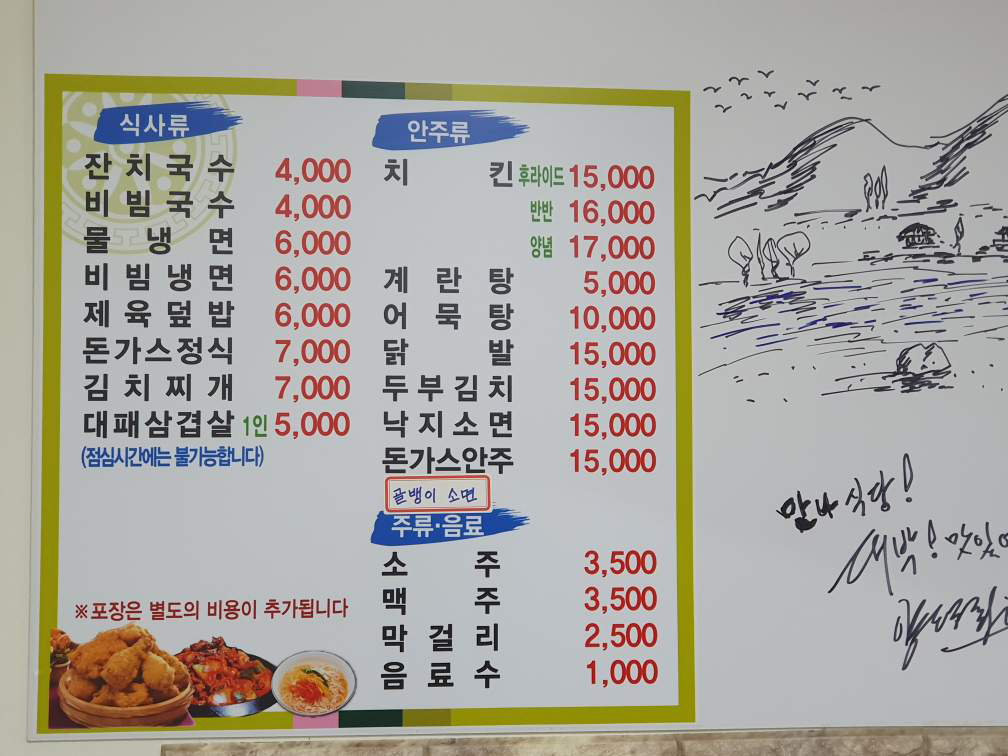 식사류
잔치국수 4,000
비빔국수 4,000
물냉면 6,000
비빔냉면 6,000
제육덮밥 6,000
돈가스정식 7,000
김치찌개 7,000
대패삼겹살 1인 5,000
(점심시간에는 불가능합니다)
※포장은 별도의 비용이 추가됩니다
안주류
치킨 후라이드 15,000
반반 16,000
양념 17,000
계란탕 5,000
어묵탕 10,000
닭발 15,000
두부김치 15,000
낙지소면 15,000
돈가스안주 15,000
골뱅이 소면
주류·음료
소주 3,500
맥주 3,500
막걸리 2,500
음료수 1,000
맛나식당!
대박! 맛있